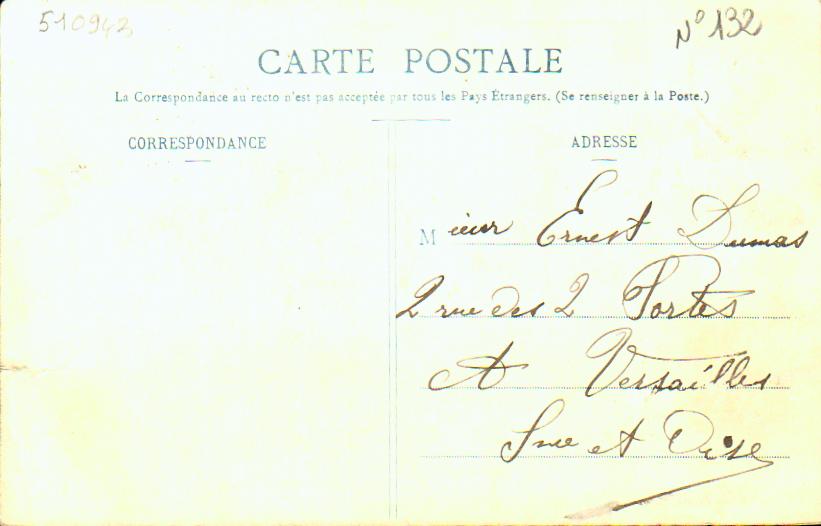 510943
N° 132
CARTE POSTALE
La Correspondance au recto n'est pas acceptée par tous les Pays Étrangers. (Se renseigner à la Poste.)
CORRESPONDANCE
ADRESSE
Mieur Ernest Dumas
2 rue des 2 Portes
A Versailles
Sne et Oise